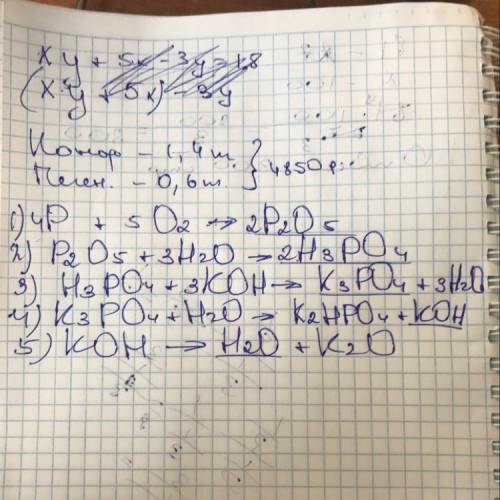 xy + 5x - 3y = 18
(x·y + 5x) - 3y
- 1,4 т.
- 0,6 т. } 4850 р.
1) 4P + 5O2 → 2P2O5
2) P2O5 + 3H2O → 2H3PO4
3) H3PO4 + 3KOH → K3PO4 + 3H2O
4) K3PO4 + H2O → K2HPO4 + KOH
5) KOH → H2O + K2O